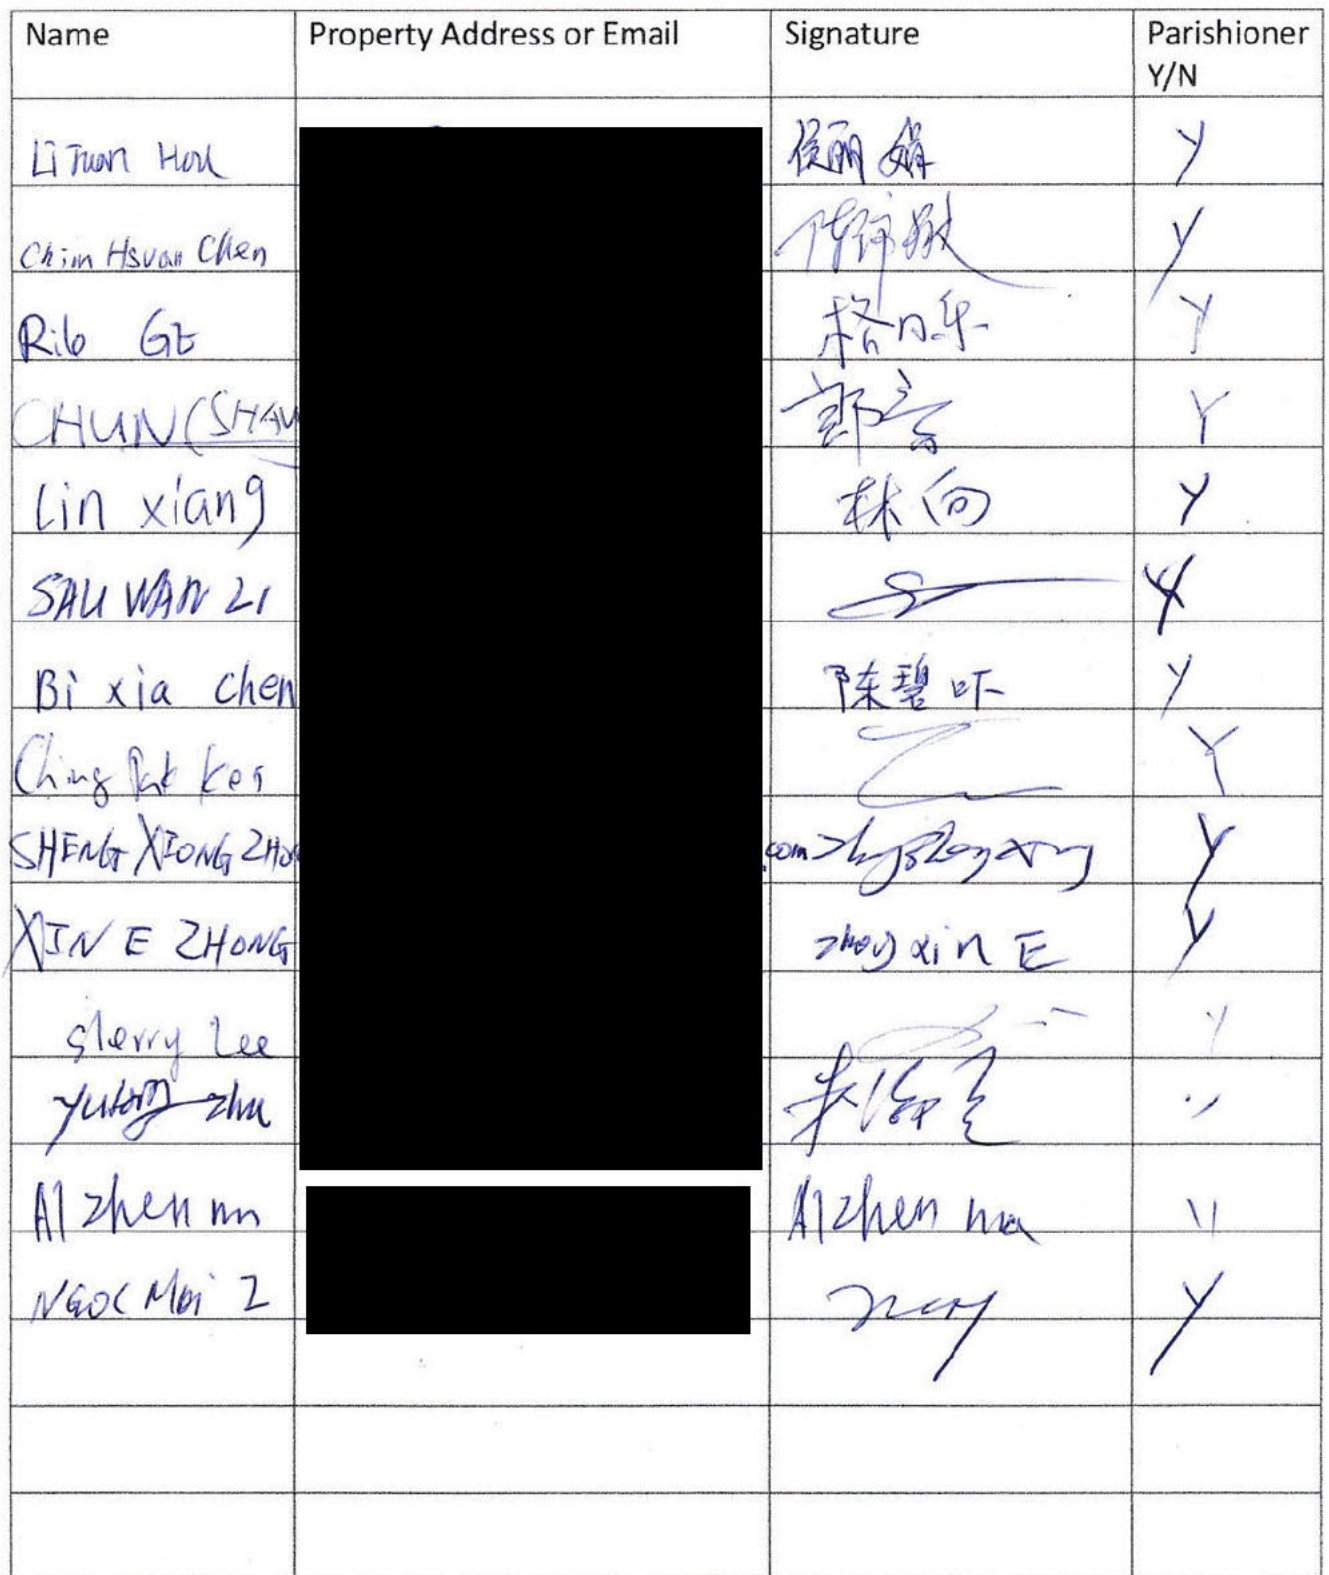 Name Property Address or Email Signature Parishioner
Y/N
Li Juan Hou 侯丽娟 Y
Chim Hsuan Chen Y
Rilo Ge 格日乐 Y
CHUN (SHAU 郭 Y
Lin xiang 林向 Y
SAU WAN LI Y
Bi xia chen 陈碧吓 Y
Ching Pak Y
SHENG XIONG ZHO .com Y
XIN E ZHONG zhong xin E Y
Sherry Lee Y
yutong zhu 朱
AI zhen AI zhen ma
NGOC Moi Y